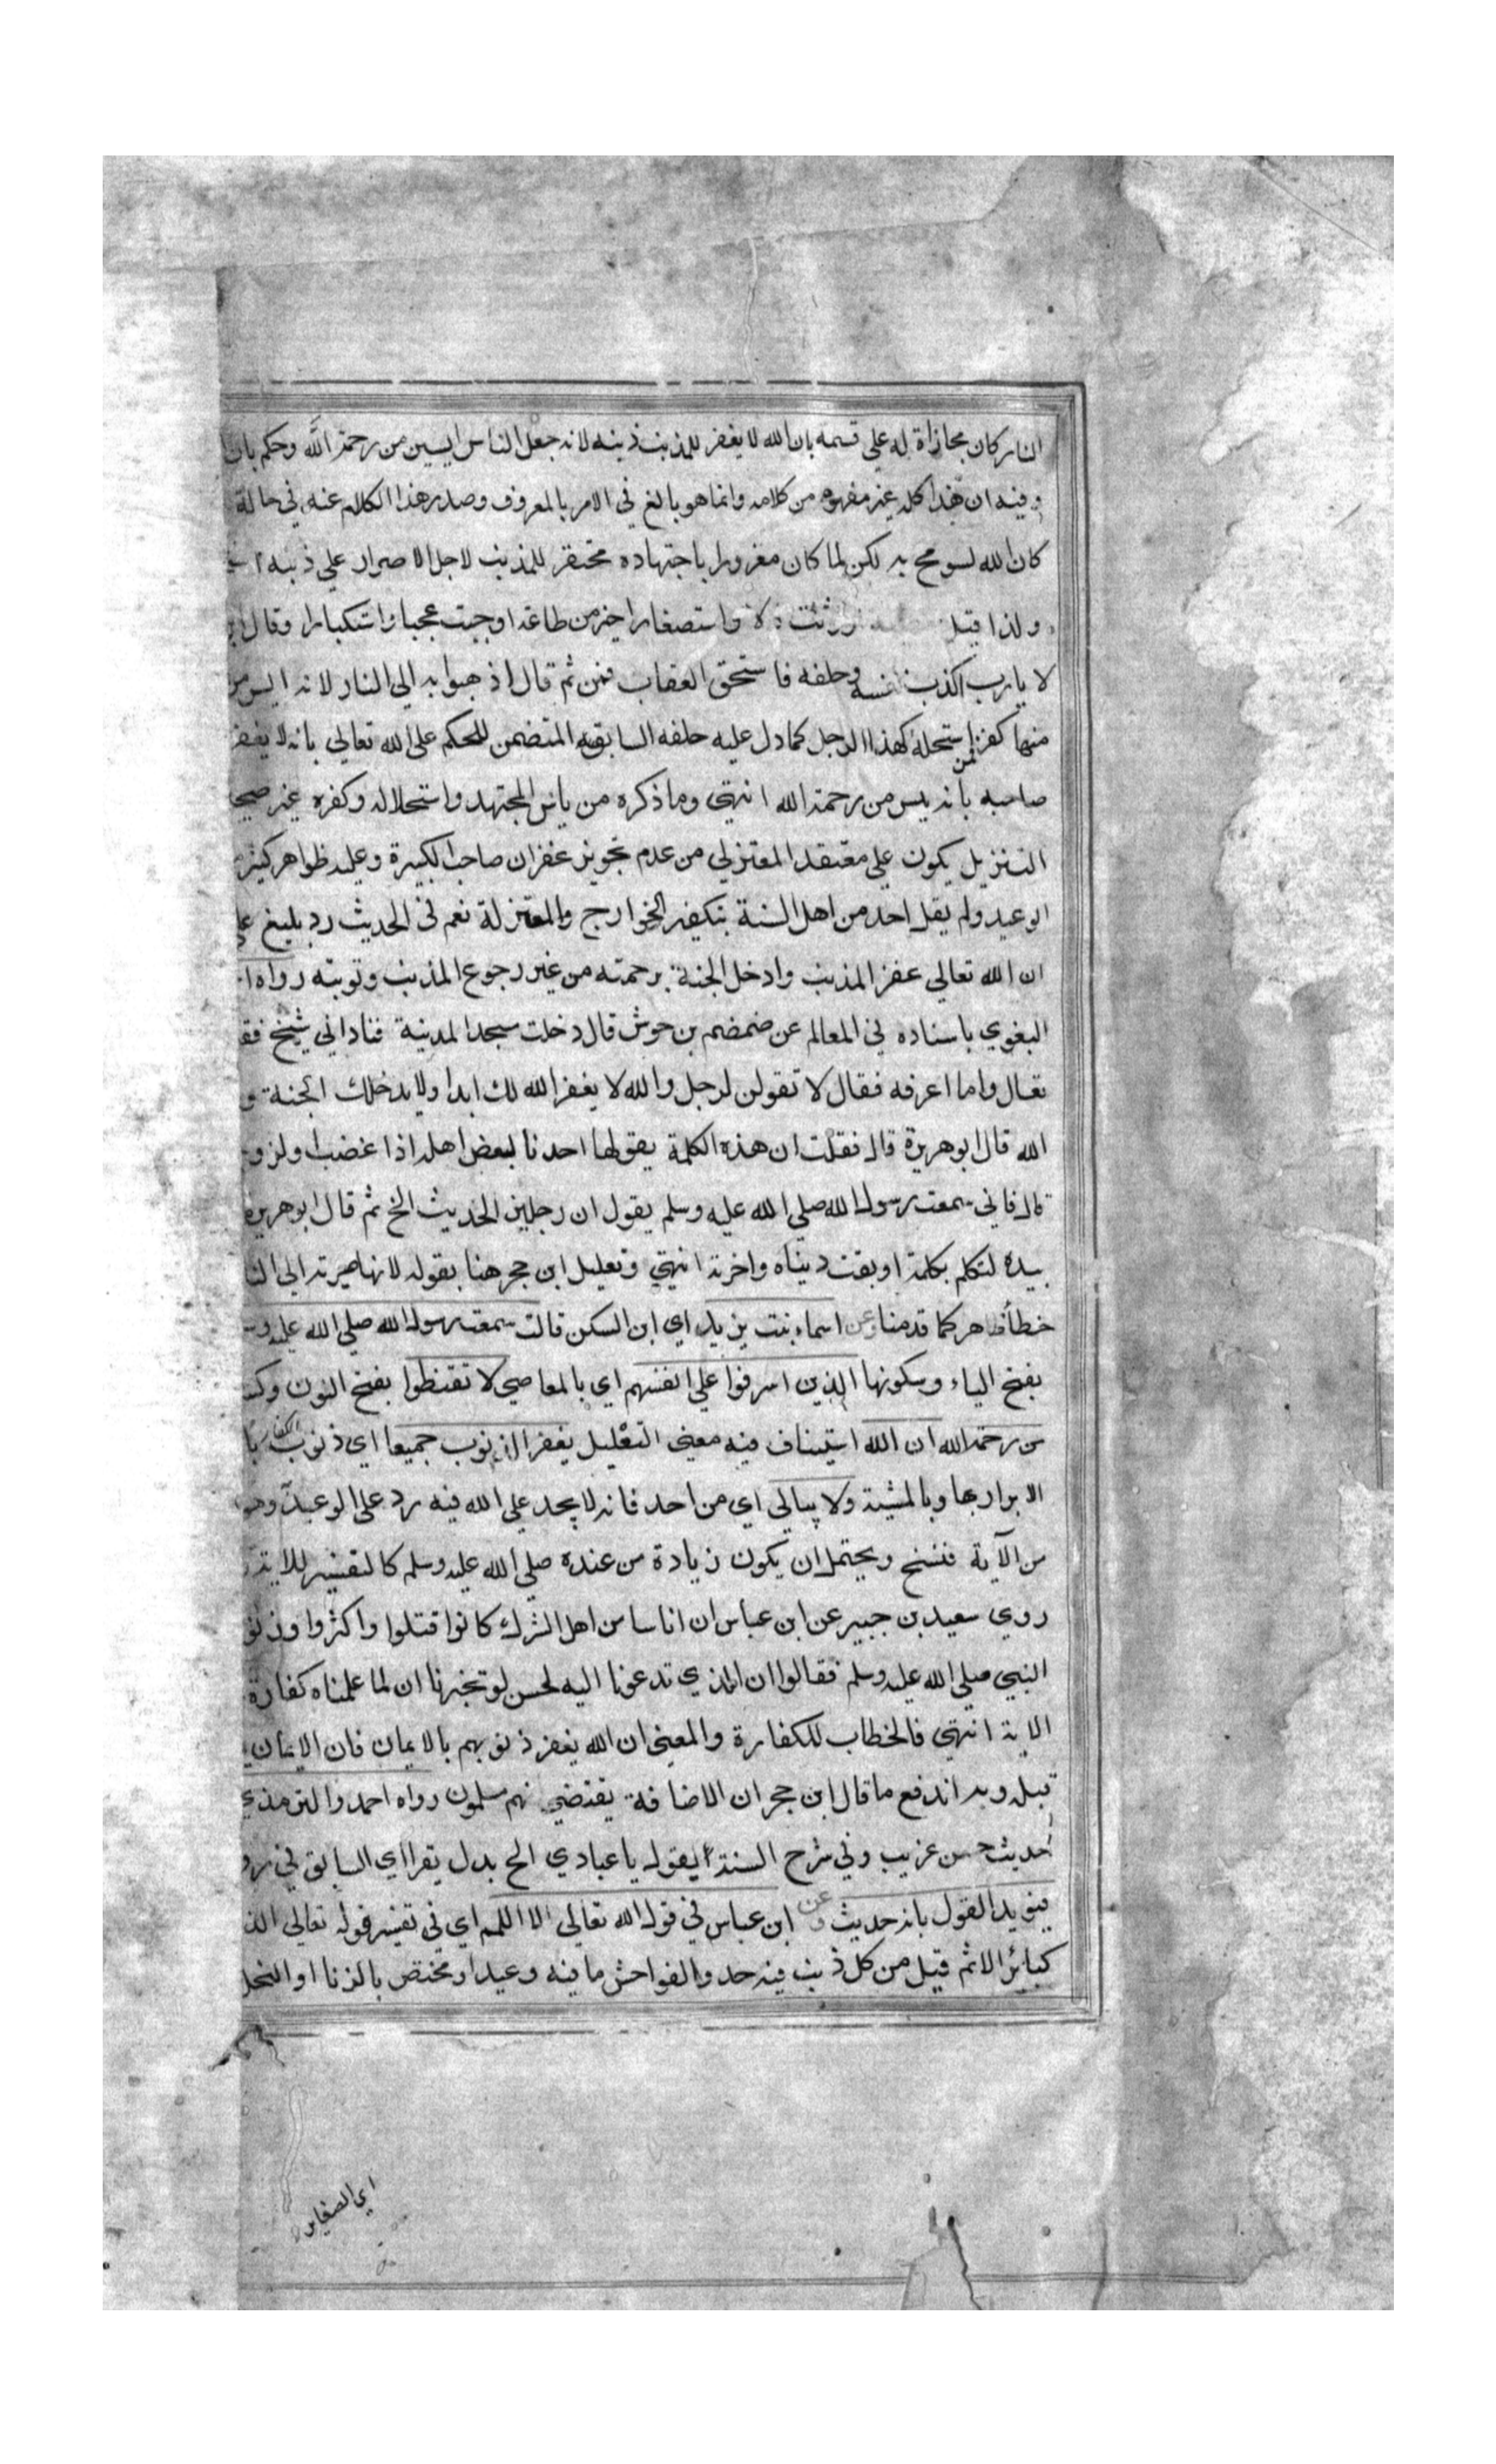 النار كان مجازاة له على قسمه بان الله لا يغفر للمذنب ذنبه لانه جعل الناس ايسين من رحمة الله وحكم بان
وفيه ان هذا كله غير مفهوم من كلامه وانما هو بالغ في الامر بالمعروف وصدر هذا الكلام عنه في حالة
كان لله لسومح به لكن لما كان مغرورا باجتهاده محتقر للمذنب لاجل الاصرار على ذنبه
ولذا قيل واستصغارا خير من طاعة اوجبت عجبا واستكبارا وقال
لا يا رب اكذب نفسه وحلفه فاستحق العقاب فمن ثم قال اذهبوا به الي النار لانه ايس من
منها كفر لمن استحله كهذا الرجل كما دل عليه حلفه السابق المتضمن للحكم على الله تعالي بانه لا يغفر
صاحبه بانه يس من رحمة الله انتهي وما ذكره من ياس المجتهد واستحلاله وكفره غير صحيح
التنزيل يكون على معتقد المعتزلي من عدم تجويز غفران صاحب الكبيرة وعليه ظواهر كثيرة
الوعيد ولم يقل احد من اهل السنة بتكفير الخوارج والمعتزلة نعم في الحديث رد بليغ
ان الله تعالي غفر المذنب وادخل الجنة برحمته من غير رجوع المذنب وتوبته رواه
البغوي باسناده في المعالم عن ضمضم بن حوش قال دخلت مسجد المدينة فناداني شيخ
تعال واما اعرفه فقال لا تقولن لرجل والله لا يغفر الله لك ابدا ولا يدخلك الجنة
الله قال ابو هريرة قال فقلت ان هذه الكلمة يقولها احدنا لبعض اهله اذا غضب او
قال فاني سمعت رسول الله صلي الله عليه وسلم يقول ان رجلين الحديث الخ ثم قال ابو هريرة
بيده لتكلم بكلمة اوبقت ديناه واخرته انتهي وتعليل ابن حجر هنا بقوله لانها صيرته الي النا
خطأ ظاهر كما قدمنا وعن اسماء بنت يزيد اي ابن السكن قالت سمعت رسول الله صلي الله عليه
بفتح الياء وسكونها الذين اسرفوا على انفسهم اي بالمعاصي لا تقنطوا بفتح النون
من رحمة الله ان الله استيناف فيه معني التعليل يغفر الذنوب جميعا اي ذنوب الكفار
الابرار بها وبالمشية ولا يبالي اي من احد فانه لا يجد على الله فيه رد على الوعيدية
من الآية فنسخ ويحتمل ان يكون زيادة من عنده صلي الله عليه وسلم كالتفسير للاية
روي سعيد بن جبير عن ابن عباس ان اناسا من اهل الشرك كانوا قتلوا واكثروا
النبي صلي الله عليه وسلم فقالوا ان الذي تدعونا اليه لحسن لو تخبرنا ان لما علمناه كفارة
الاية انتهي فالخطاب للكفارة والمعني ان الله يغفر ذنوبهم بالايمان فان الايمان
قبله وبه اندفع ما قال ابن حجر ان الاضافة يقتضي نهم مسلمون رواه احمد والترمذي
حديث حسن غريب وفي شرح السنة يقول يا عبادي الخ بدل يقرا اي السابق في
فيؤيد القول بانه حديث وعن ابن عباس في قوله الله تعالي الا اللمم اي في تفسير قوله تعالي الذ
كبائر الاثم قيل من كل ذنب فيه حد والفواحش ما فيه وعيد او مختص بالزنا او البخل
اي الصغاير